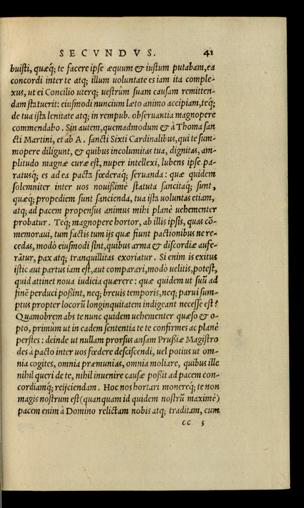 SECVNDVS. 41
buisti, quæq́; te facere ipse æquum & iustum putabam, ea
concordi inter te atq; illum uoluntate es iam ita comple-
xus, ut ei Concilio uterq; uestrûm suam causam remitten-
dam statuerit: eiusmodi nuncium læto animo accipiam, teq́;
de tua ista lenitate atq; in rempub. obseruantia magnopere
commendabo. Sin autem, quemadmodum & à Thoma san
cti Martini, et ab A. sancti Sixti Cardinalibus, qui te sum-
mopere diligunt, & quibus incolumitas tua, dignitas, am-
plitudo magnæ curæ est, nuper intellexi, lubens ipse pa-
ratusq́; es ad ea pacta fœderaq́; seruanda: quæ quidem
solenniter inter uos nouißimè statuta sancitaq́; sunt,
quæq; propediem sunt sancienda, tua ista uoluntas etiam,
atq; ad pacem propensus animus mihi planè uehementer
probatur. Teq́; magnopere hortor, ab illis ipsis, quas cō-
memoraui, tum factis tum ijs quæ fiunt pactionibus ne re-
cedas, modò eiusmodi sint, quibus arma & discordiæ aufe-
rātur, pax atq; tranquillitas exoriatur. Si enim is exitus
istic aut partus iam est, aut comparari, modò uelitis, potest,
quid attinet noua iudicia quærere: quæ quidem ut suū ad
finē perduci poßint, neq; breuis temporis, neq; parui sum-
ptus propter locorū longinquitatem indigent necesse est?
Quamobrem abs te nunc quidem uehementer quæso & o-
pto, primùm ut in eadem sententia te te confirmes ac planè
perstes: deinde ut nullam prorsus ansam Prußiæ Magistro
des à pacto inter uos fœdere desciscendi, uel potius ut om-
nia cogites, omnia præmunias, omnia moliare, quibus ille
nihil queri de te, nihil inuenire causæ poßit ad pacem con-
cordiamq́; reijciendam. Hoc nos hortari moneréq; te non
magis nostrum est (quanquam id quidem nostrū maximè)
pacem enim à Domino relictam nobis atq; traditam, cum
cc 5